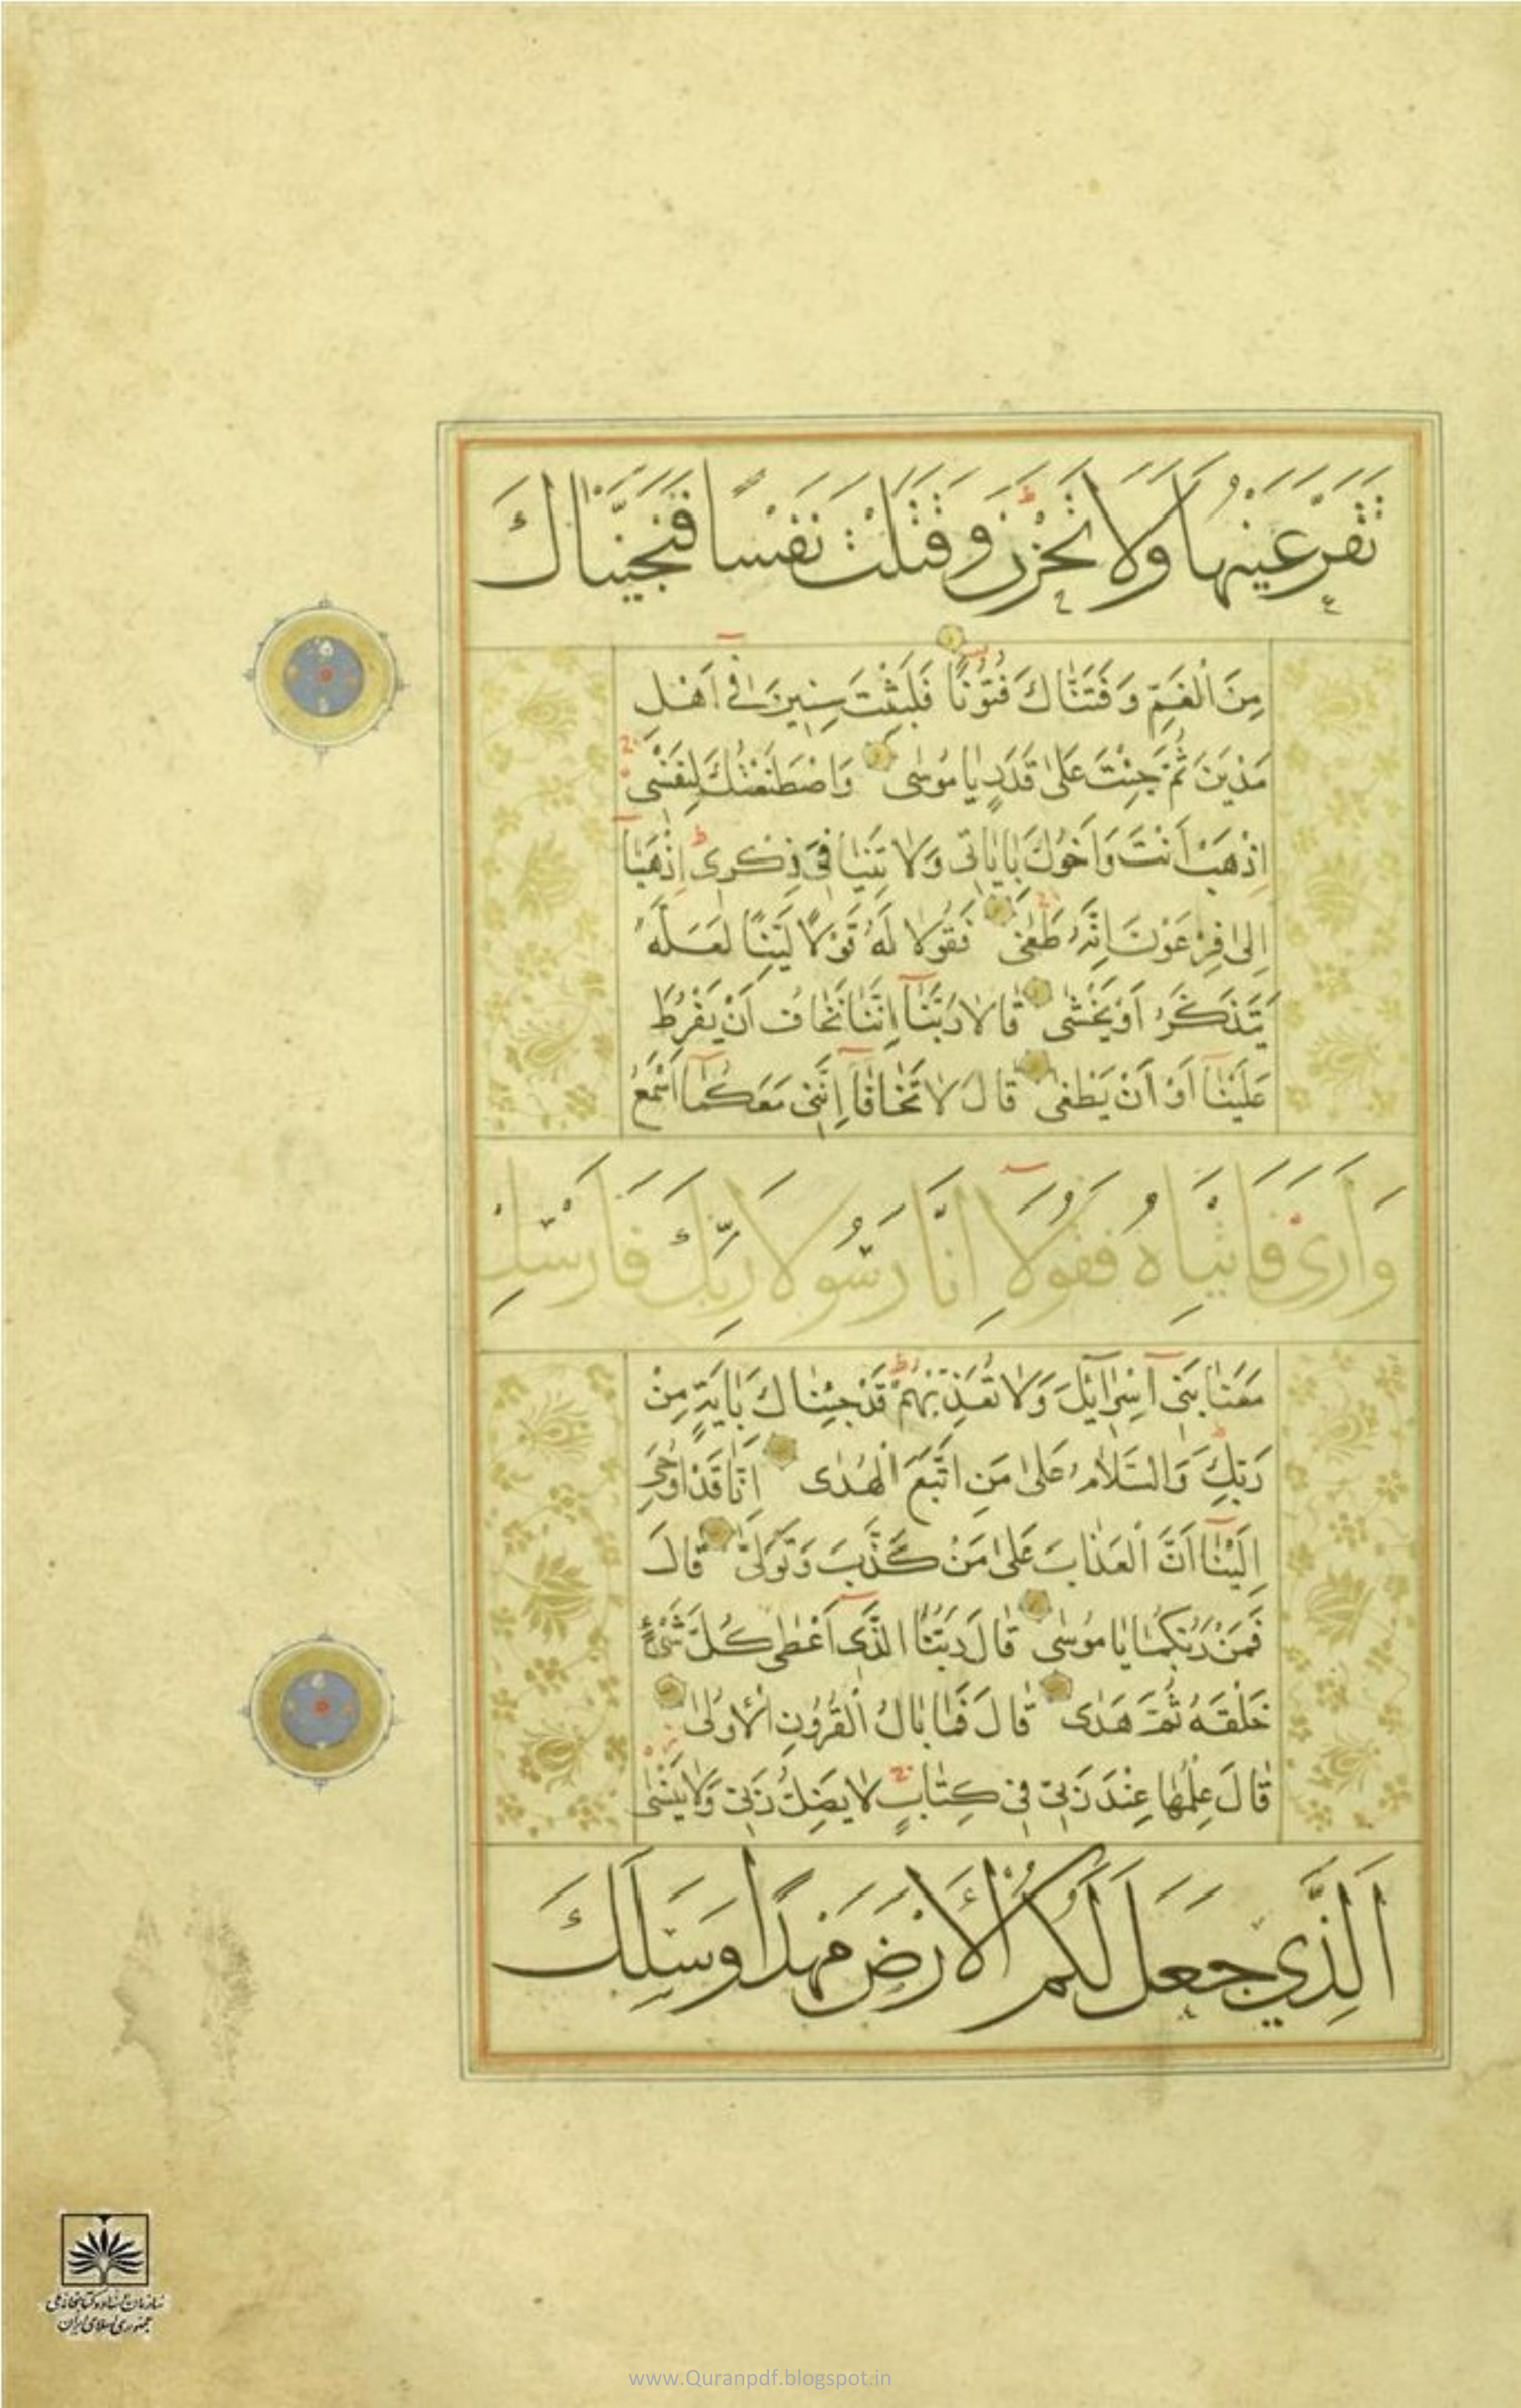 تَقَرَّ عَيْنُهَا وَلَا تَحْزَنَ وَقَتَلْتَ نَفْسًا فَنَجَّيْنَاكَ
مِنَ الْغَمِّ وَفَتَنَّاكَ فُتُونًا فَلَبِثْتَ سِنِينَ فِي أَهْلِ
مَدْيَنَ ثُمَّ جِئْتَ عَلَىٰ قَدَرٍ يَا مُوسَىٰ وَاصْطَنَعْتُكَ لِنَفْسِي
اِذْهَبْ أَنْتَ وَأَخُوكَ بِاٰيَاتِي وَلَا تَنِيَا فِي ذِكْرِي اِذْهَبَا
إِلَىٰ فِرْعَوْنَ إِنَّهُ طَغَىٰ فَقُولَا لَهُ قَوْلًا لَيِّنًا لَعَلَّهُ
يَتَذَكَّرُ أَوْ يَخْشَىٰ قَالَا رَبَّنَا إِنَّنَا نَخَافُ أَنْ يَفْرُطَ
عَلَيْنَا أَوْ أَنْ يَطْغَىٰ قَالَ لَا تَخَافَا إِنَّنِي مَعَكُمَا أَسْمَعُ
وَأَرَىٰ فَاْتِيَاهُ فَقُولَا إِنَّا رَسُولَا رَبِّكَ فَأَرْسِلْ
مَعَنَا بَنِي إِسْرَائِيلَ وَلَا تُعَذِّبْهُمْ قَدْ جِئْنَاكَ بِاٰيَةٍ مِنْ
رَبِّكَ وَالسَّلَامُ عَلَىٰ مَنِ اتَّبَعَ الْهُدَىٰ إِنَّا قَدْ أُوحِيَ
إِلَيْنَا أَنَّ الْعَذَابَ عَلَىٰ مَنْ كَذَّبَ وَتَوَلَّىٰ قَالَ
فَمَنْ رَبُّكُمَا يَا مُوسَىٰ قَالَ رَبُّنَا الَّذِي أَعْطَىٰ كُلَّ شَيْءٍ
خَلْقَهُ ثُمَّ هَدَىٰ قَالَ فَمَا بَالُ الْقُرُونِ الْأُولَىٰ
قَالَ عِلْمُهَا عِنْدَ رَبِّي فِي كِتَابٍ لَا يَضِلُّ رَبِّي وَلَا يَنْسَىٰ
اَلَّذِي جَعَلَ لَكُمُ الْأَرْضَ مَهْدًا وَسَلَكَ
سازمان اسناد و کتابخانه ملی
جمهوری اسلامی ایران
www.Quranpdf.blogspot.in